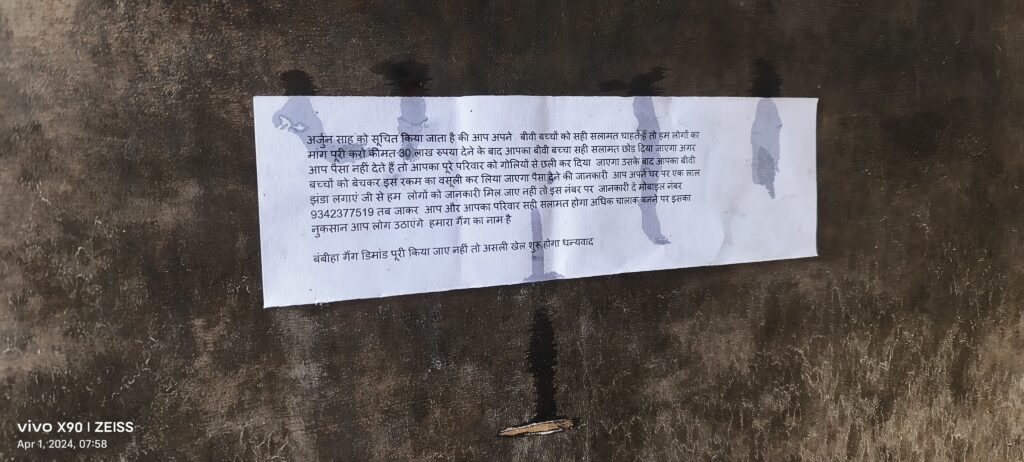 अर्जुन साह को सूचित किया जाता है की आप अपने बीवी बच्चों को सही सलामत चाहते हैं तो हम लोगों का
मांग पूरी करो कीमत 30 लाख रुपया देने के बाद आपका बीवी बच्चा सही सलामत छोड़ दिया जाएगा अगर
आप पैसा नहीं देते हैं तो आपका पूरे परिवार को गोलियों से छली कर दिया जाएगा उसके बाद आपका बीवी
बच्चों को बेचकर इस रकम का वसूली कर लिया जाएगा पैसा देने की जानकारी आप अपने घर पर एक लाल
झंडा लगाएं जी से हम लोगों को जानकारी मिल जाए नही तो इस नंबर पर जानकारी दें मोबाइल नंबर
9342377519 तब जाकर आप और आपका परिवार सही सलामत होगा अधिक चालाक बनने पर इसका
नुकसान आप लोग उठाएंगे हमारा गैंग का नाम है
बंबीहा गैंग डिमांड पूरी किया जाए नहीं तो असली खेल शुरू होगा धन्यवाद
vivo X90 | ZEISS
Apr 1, 2024, 07:58